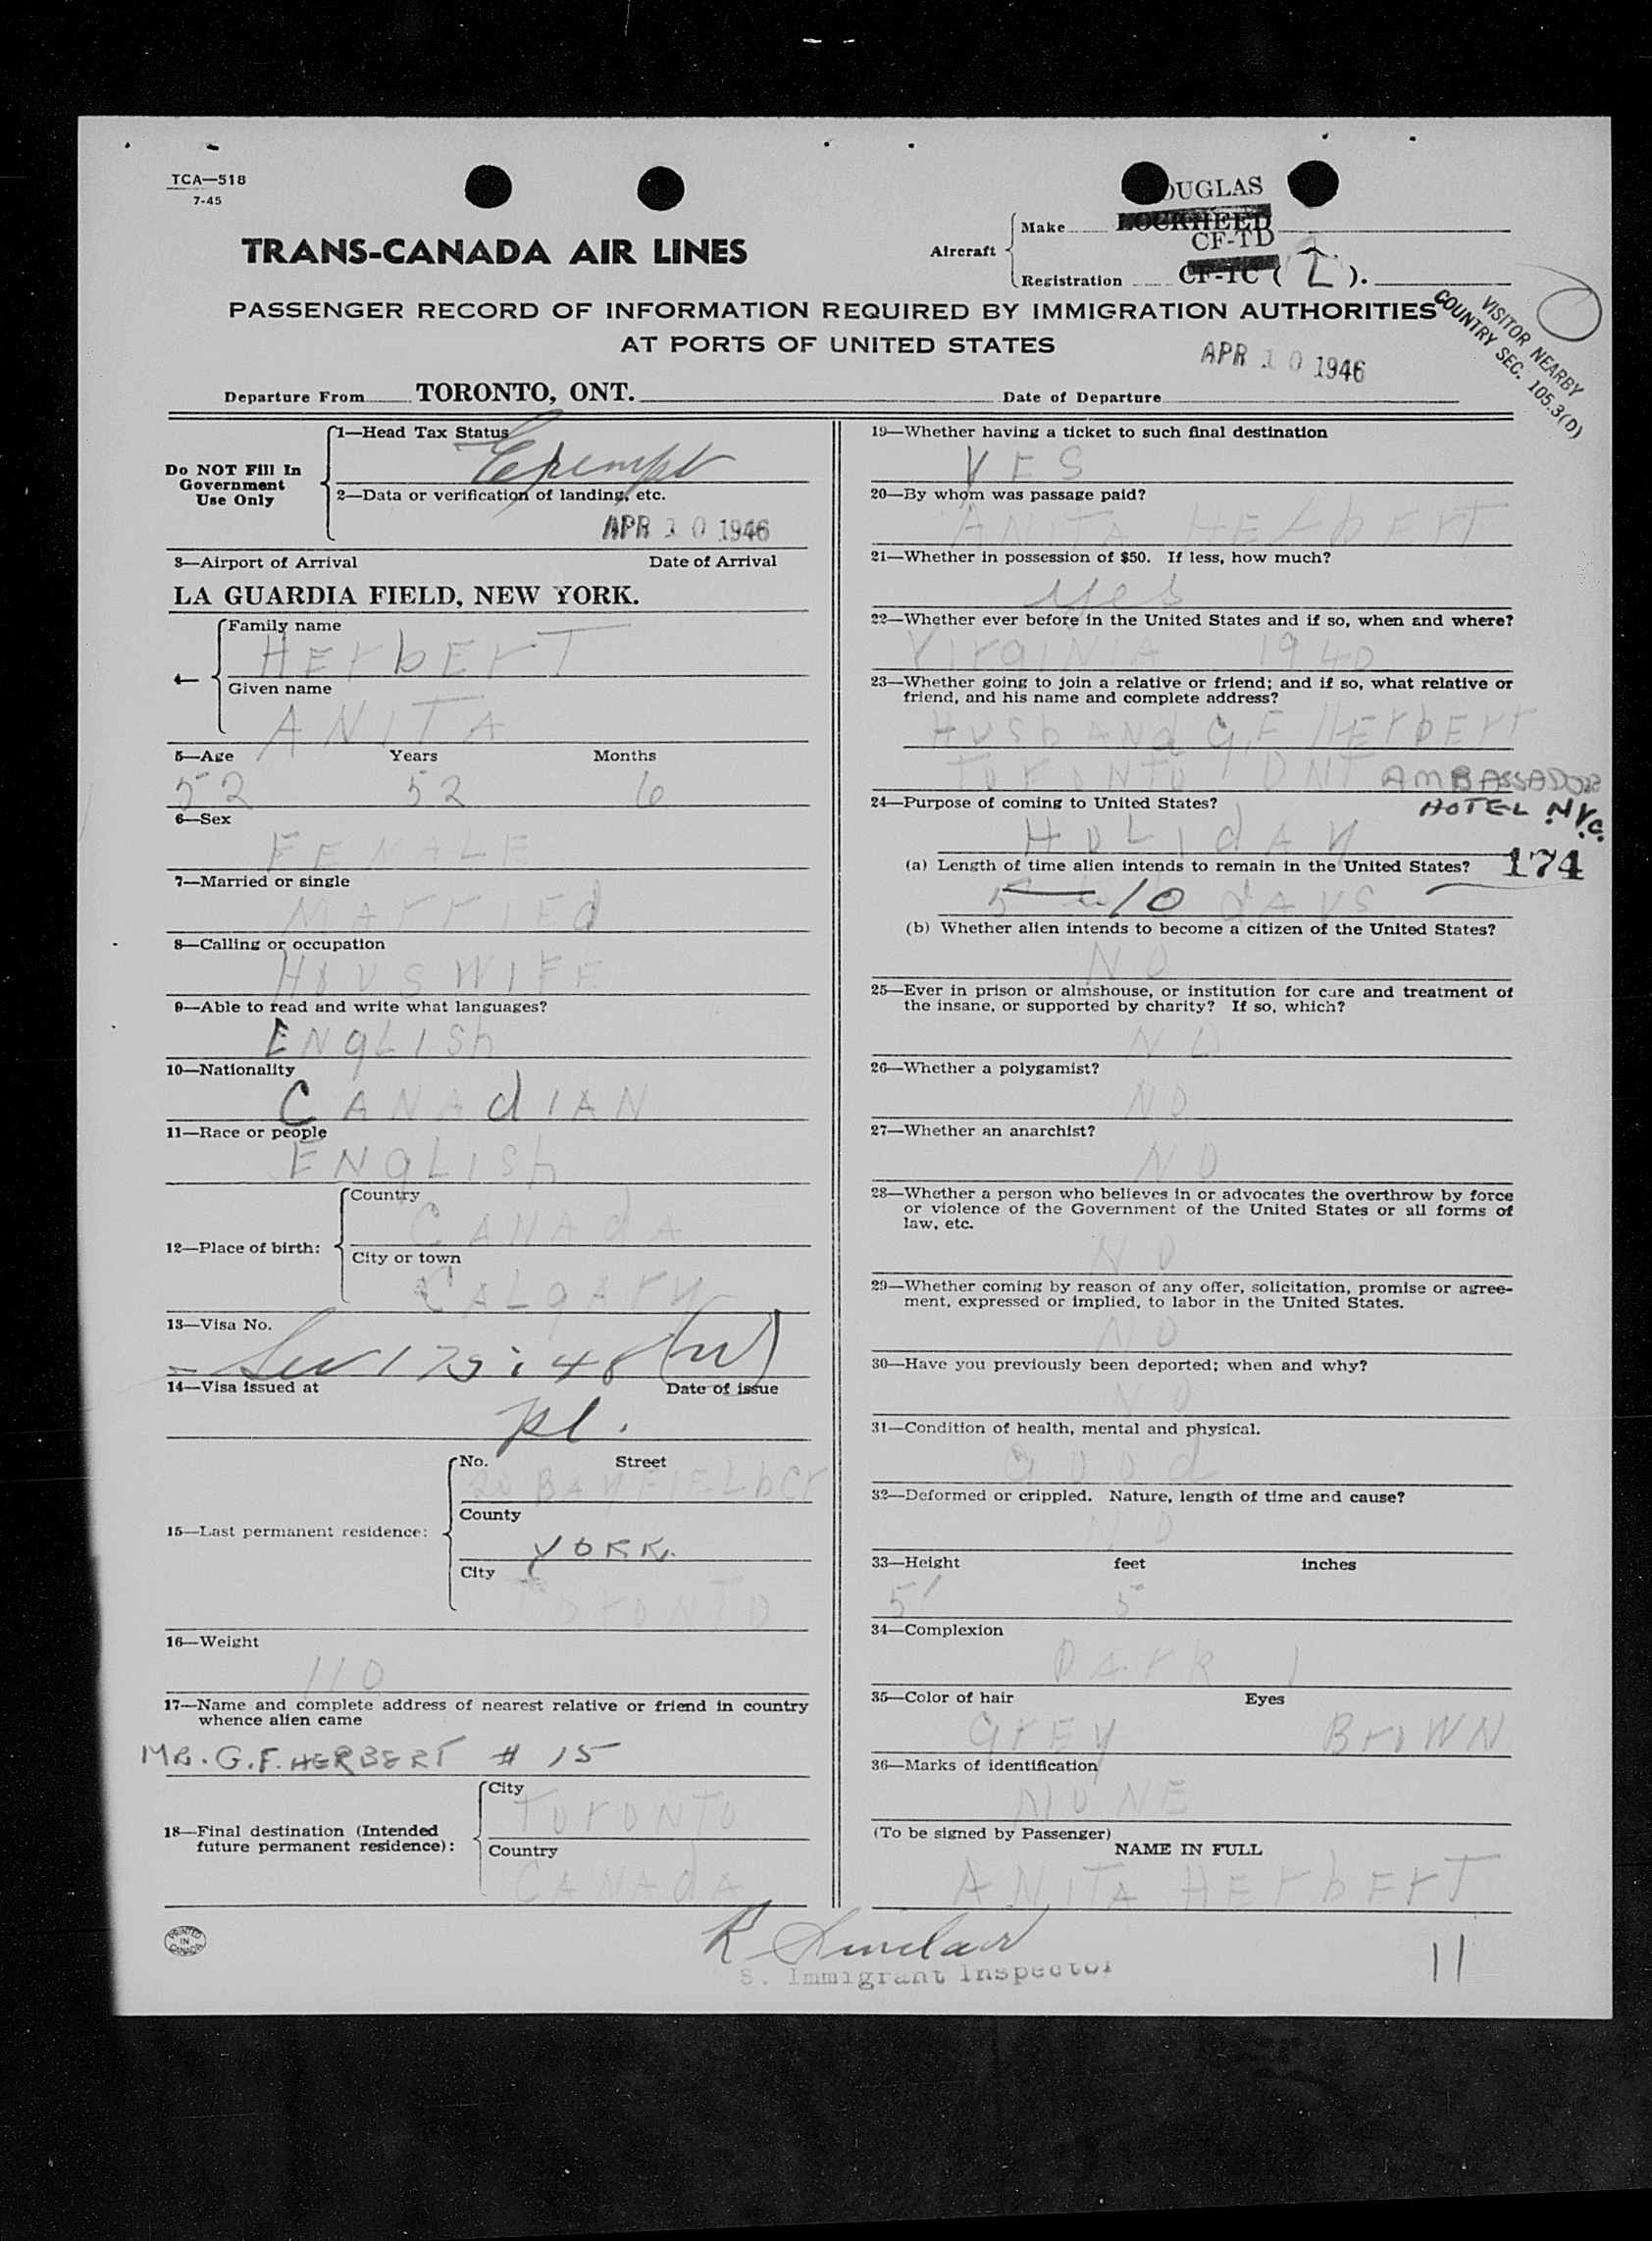 TCA—518
7-45
TRANS-CANADA AIR LINES
Aircraft
Make
DOUGLAS
LOCKHEED
CF-TD
Registration
CF-TC ( L ).
PASSENGER RECORD OF INFORMATION REQUIRED BY IMMIGRATION AUTHORITIES
AT PORTS OF UNITED STATES
VISITOR NEARBY
COUNTRY SEC. 105.3(D)
APR 10 1946
Departure From TORONTO, ONT.
Date of Departure
Do NOT Fill In
Government
Use Only
1—Head Tax Status
Exempt
2—Data or verification of landing, etc.
APR 10 1946
3—Airport of Arrival Date of Arrival
LA GUARDIA FIELD, NEW YORK.
4—
Family name
HErbErT
Given name
ANITA
5—Age Years Months
52 52 6
6—Sex
FEMALE
7—Married or single
MArrIEd
8—Calling or occupation
HOUSWIFE
9—Able to read and write what languages?
ENgLISh
10—Nationality
CANAdIAN
11—Race or people
ENgLISh
12—Place of birth:
Country
CANAdA
City or town
CALgArY
13—Visa No.
175:48 (w)
14—Visa issued at Date of issue
pl.
15—Last permanent residence:
No. Street
20 BAYFIELD Cr
County
YORK.
City
TOrONTO
16—Weight
110
17—Name and complete address of nearest relative or friend in country
whence alien came
MR. G.F. HERBERT # 15
18—Final destination (Intended
future permanent residence):
City
TOrONTO
Country
CANAdA
19—Whether having a ticket to such final destination
YES
20—By whom was passage paid?
ANITA HErbErT
21—Whether in possession of $50. If less, how much?
yes
22—Whether ever before in the United States and if so, when and where?
VIrgINIA 1940
23—Whether going to join a relative or friend; and if so, what relative or
friend, and his name and complete address?
HUSbANd G.F HErbErT
TOrONTO, ONT AMBASSADOR
HOTEL N.Y.C.
24—Purpose of coming to United States?
HOLIdAY
(a) Length of time alien intends to remain in the United States?
174
5 10 dAYS
(b) Whether alien intends to become a citizen of the United States?
NO
25—Ever in prison or almshouse, or institution for care and treatment of
the insane, or supported by charity? If so, which?
NO
26—Whether a polygamist?
NO
27—Whether an anarchist?
NO
28—Whether a person who believes in or advocates the overthrow by force
or violence of the Government of the United States or all forms of
law, etc.
NO
29—Whether coming by reason of any offer, solicitation, promise or agree-
ment, expressed or implied, to labor in the United States.
NO
30—Have you previously been deported; when and why?
NO
31—Condition of health, mental and physical.
gOOd
32—Deformed or crippled. Nature, length of time and cause?
NO
33—Height feet inches
5' 5
34—Complexion
DArK
35—Color of hair Eyes
GrEY BrOWN
36—Marks of identification
NONE
(To be signed by Passenger)
NAME IN FULL
ANITA HErbErT
PRINTED
IN
CANADA
R Sinclair
S. Immigrant Inspector
11